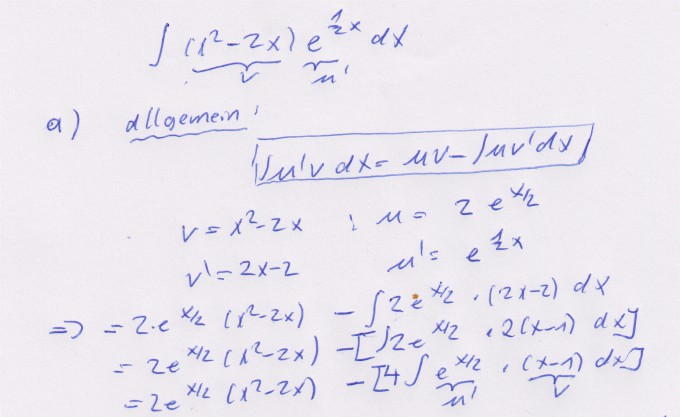 ∫ (x²-2x) e^{½x} dx
v u'
a) allgemein:
∫u'v dx = uv - ∫uv' dx
v = x²-2x ; u = 2 e^{x/2}
v' = 2x-2 u' = e^{½x}
=> = 2·e^{x/2} (x²-2x) - ∫2e^{x/2} · (2x-2) dx
= 2e^{x/2} (x²-2x) - [∫2e^{x/2} · 2(x-1) dx]
= 2e^{x/2} (x²-2x) - [4∫ e^{x/2} · (x-1) dx]
u' v